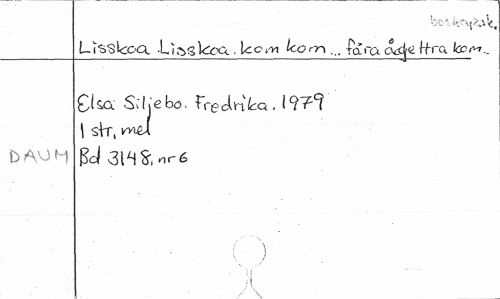 boskapslk.
Lisskoa. Lisskoa. kom kom... fåra å gettra kom..
Elsa Siljebo. Fredrika. 1979
1 str, mel
DAUM Bd 3148, nr 6